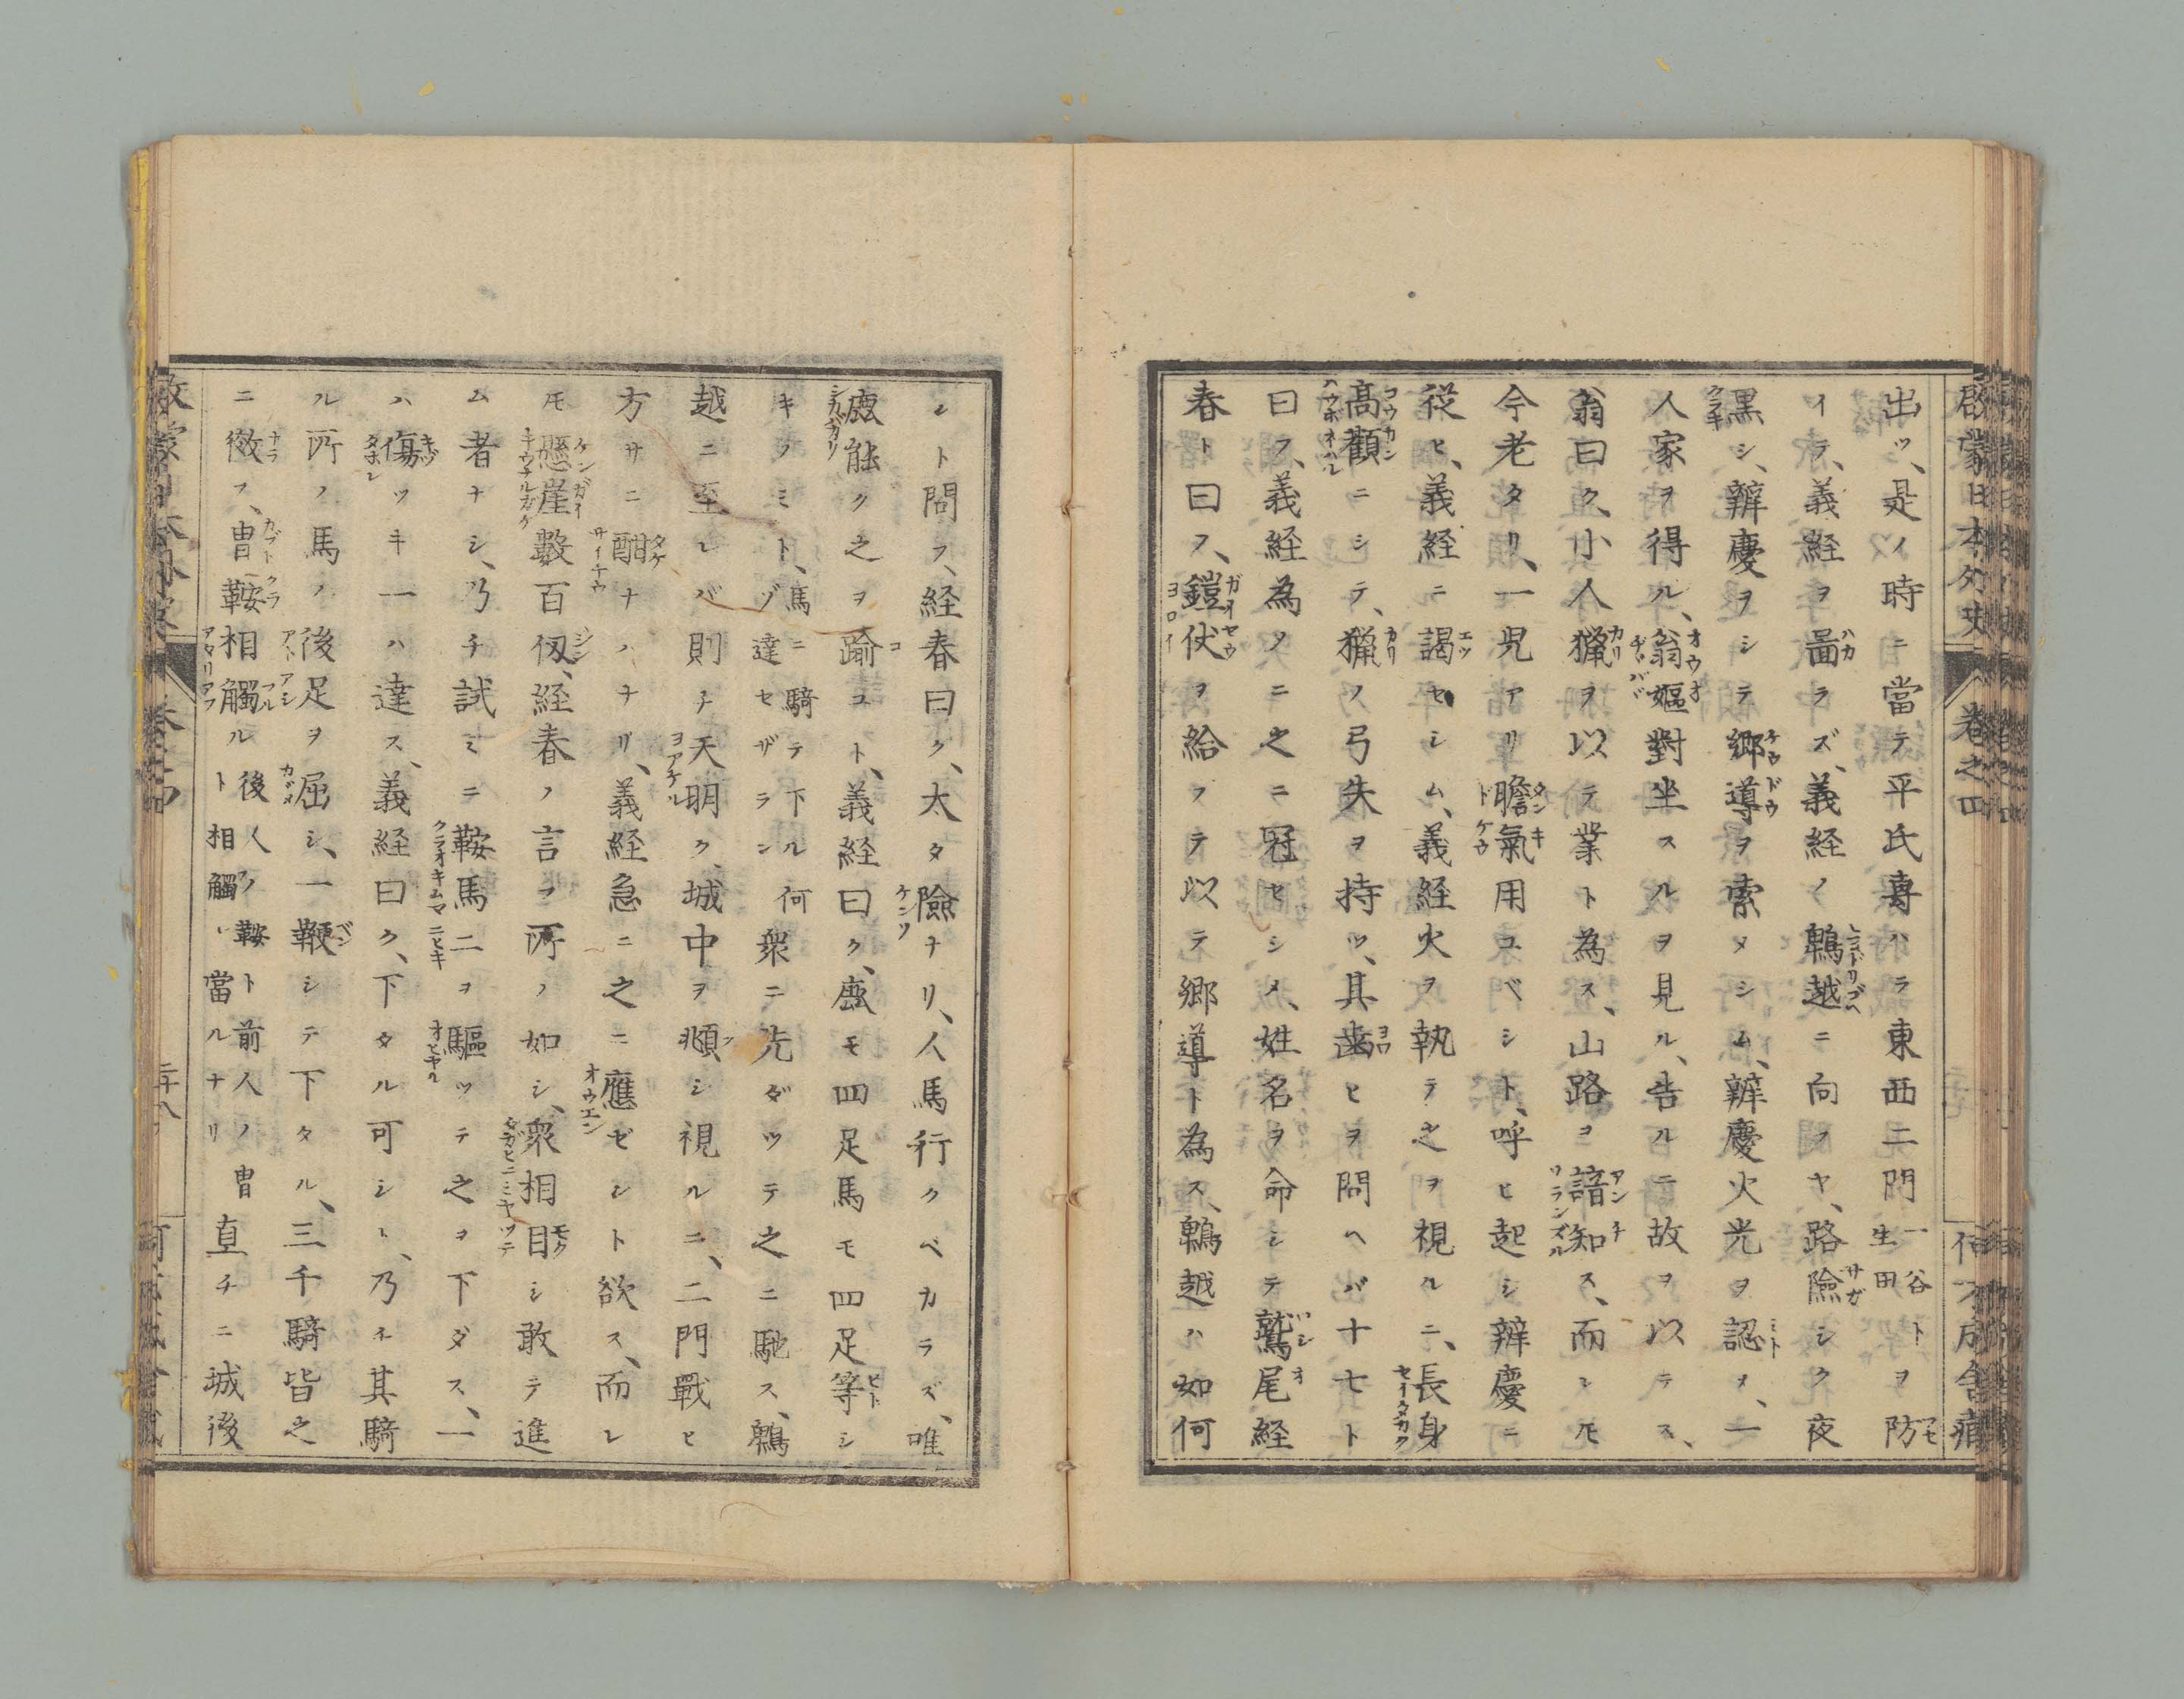 啓蒙日本外史 巻之四
出ツ、是ノ時ニ當テ平氏專ハラ東西二門一谷生田トヲ防
イラ、義経ヲ啚ラズ、義経ノ鵯越ニ向フヤ、路險シク夜
黒シ、辨慶ヲシテ郷導ヲ索メシム、辨慶火光ヲ認メ、一
人家ヲ得ル、翁嫗對坐スルヲ見ル、告ルニ故ヲ以テス、
翁曰ク、小人猟ヲ以テ業ト為ス、山路ヲ諳知ス、而レモ
今老タリ、一兒アリ膽氣用ユベシト、呼ヒ起シ辨慶ニ
従ヒ、義経ニ謁セシム、義経火ヲ執テ之ヲ視ルニ、長身
高顴ニシテ、猟ノ弓矢ヲ持ツ、其歯ヒヲ問ヘバ十七ト
曰フ、義経為メニ之ニ冠セシメ、姓名ヲ命シテ鷲尾経
春ト曰フ、鎧仗ヲ給フテ以テ郷導ト為ス、鵯越ハ如何
ント問フ、経春曰ク、太タ險ナリ、人馬行クベカラズ、唯
鹿能ク之ヲ踰ユト、義経曰ク、鹿モ四足馬モ四足等シ
キノミト、馬ニ騎テ下ル何ゾ達セザラン衆ニ先ダツテ之ニ馳ス、鵯
越ニ至レバ則チ天明ク、城中ヲ頫シ視ルニ、二門戰ヒ
方サニ酣ナハナリ、義経急ニ之ニ應ゼント欲ス、而レ
モ懸崖數百仭、経春ノ言ヲ所ノ如シ、衆相目シ敢テ進
ム者ナシ、乃チ試ミニ鞍馬二ヲ驅ツテ之ヲ下ダス、一
ハ傷ツキ一ハ達ス、義経曰ク、下タル可シト、乃チ其騎
ル所ノ馬ノ後足ヲ屈シ、一鞭シテ下タル、三千騎皆之
ニ傚フ、冑鞍相觸ル後人ノ鞍ト前人ノ冑ト相觸レ當ルナリ直チニ城後
啓蒙日本外史 巻之四 二十八